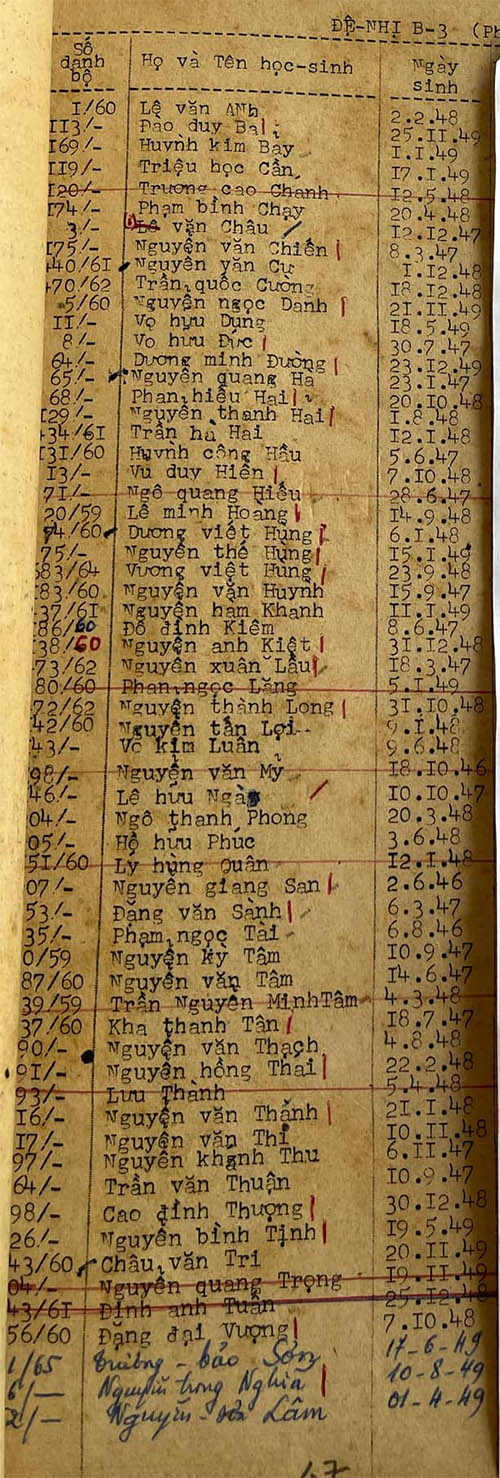 ĐỆ-NHỊ B-3 (Ph
Số danh bộ Họ và Tên học-sinh Ngày sinh
I/60 Lê văn ANh 2.2.48
II3/- Đào duy Ba 25.II.49
I69/- Huỳnh kim Bảy I.I.49
II9/- Triệu học Cần I7.I.49
I20/- Trương cao Chanh I2.5.48
I74/- Phạm bỉnh Chạy 20.4.48
3/- Lê văn Châu I2.I2.47
I75/- Nguyễn văn Chiến 8.3.47
40/6I Nguyễn văn Cư I.I2.48
70/62 Trần quốc Cường I8.I2.48
5/60 Nguyễn ngọc Danh 2I.II.49
II/- Vọ hưu Dụng I8.5.49
8/- Vo hưu Đức 30.7.47
64/- Dương minh Đường 23.I2.49
65/- Nguyễn quang Hà 23.I.47
68/- Phan hiếu Hai 20.I0.48
I29/- Nguyễn thanh Hai I.8.48
34/6I Trần hà Hai I2.I.48
I3I/60 Huỳnh công Hầu 5.6.47
I3/- Vu duy Hiền 7.I0.48
7I/- Ngô quang Hiếu 28.6.47
20/59 Lê minh Hoàng I4.9.48
74/60 Dương việt Hùng 6.I.48
75/- Nguyễn thế Hùng I5.I.49
83/64 Vương việt Hùng 23.9.48
83/60 Nguyễn văn Huỳnh I5.9.47
37/6I Nguyễn ham Khanh II.I.49
86/60 Đỗ đình Kiêm 8.6.47
38/60 Nguyễn anh Kiệt 3I.I2.48
73/62 Nguyễn xuân Lầu I8.3.47
80/60 Phan ngọc Lăng 5.I.49
72/62 Nguyễn thành Long 3I.I0.48
42/60 Nguyễn tấn Lợi 9.I.48
43/- Võ kim Luân 9.6.48
98/- Nguyễn văn Mỹ I8.I0.46
46/- Lê hưu Ngà I0.I0.47
04/- Ngô thanh Phong 20.3.48
05/- Hồ hưu Phúc 3.6.48
5I/60 Lý hùng Quân I2.I.48
07/- Nguyễn giang San 2.6.46
53/- Đặng văn Sành 6.3.47
35/- Phạm ngọc Tài 6.8.46
0/59 Nguyễn kỳ Tâm I0.9.47
87/60 Nguyễn văn Tâm I4.6.47
39/59 Trần Nguyên MinhTâm 4.3.48
37/60 Kha thanh Tân I8.7.47
90/- Nguyễn văn Thạch 4.8.48
9I/- Nguyễn hồng Thai 22.2.48
93/- Lưu Thành 5.4.48
I6/- Nguyễn văn Thắnh 2I.I.48
I7/- Nguyễn văn Thi I0.II.48
97/- Nguyễn khanh Thu 6.II.47
64/- Trần văn Thuận I0.9.47
98/- Cao đình Thượng 30.I2.48
26/- Nguyễn bình Tịnh I9.5.49
43/60 Châu văn Tri 20.II.49
04/- Nguyễn quang Trọng I9.II.49
43/6I Đinh anh Tuấn 25.I2.48
56/60 Đặng đại Vượng 7.I0.48
1/65 Trương-bảo Sơn 17-6-49
6/- Nguyễn trọng Nghĩa 10-8-49
2/- Nguyễn Lâm 01-4-49